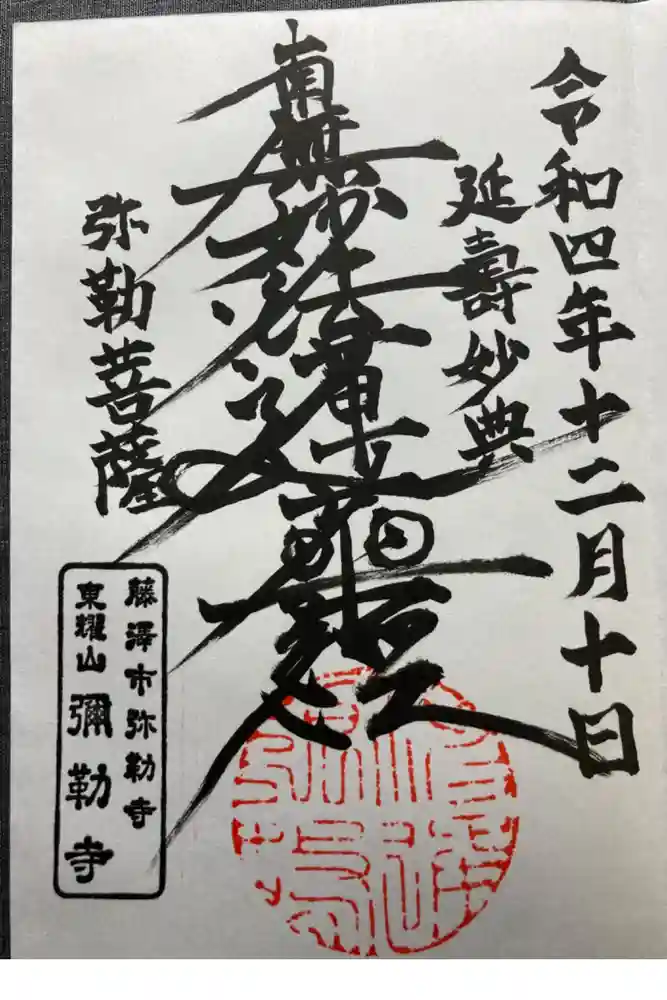 令和四年十二月十日
延壽妙典
南無妙法蓮華經
弥勒菩薩
藤澤市弥勒寺
東耀山彌勒寺